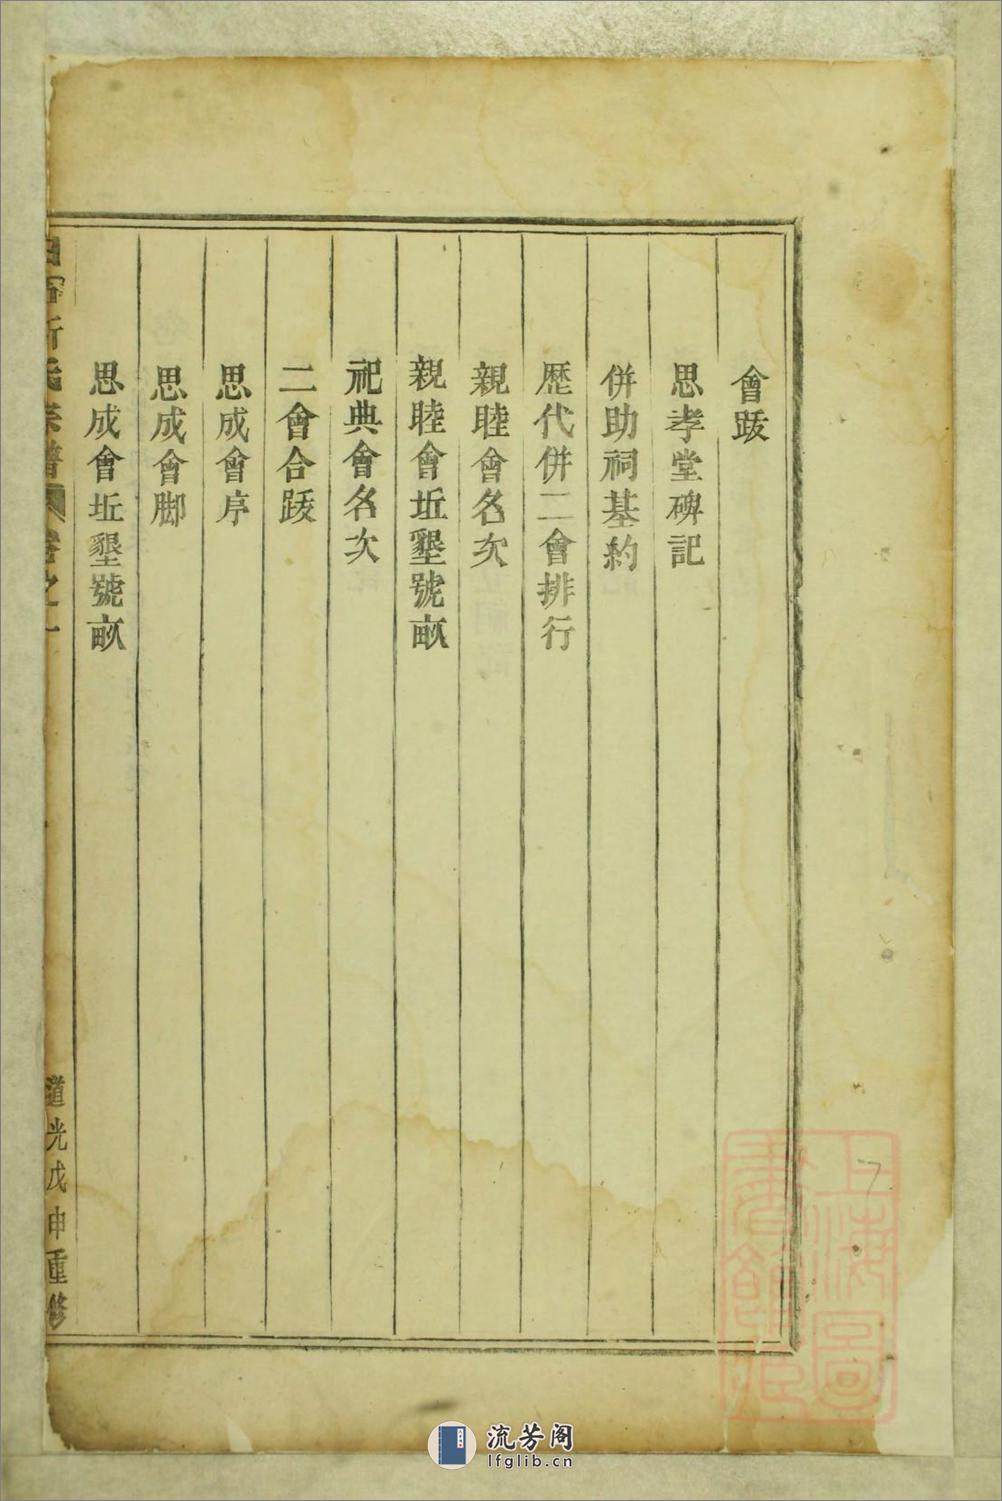 會跋
思孝堂碑記
併助祠基約
歷代併二會排行
親睦會名次
親睦會坵墾號畝
祀典會名次
二會合跋
思成會序
思成會脚
思成會坵墾號畝
氏宗譜 卷之一
道光戊申重修
上海圖書館藏
7
流芳阁
lfglib.cn